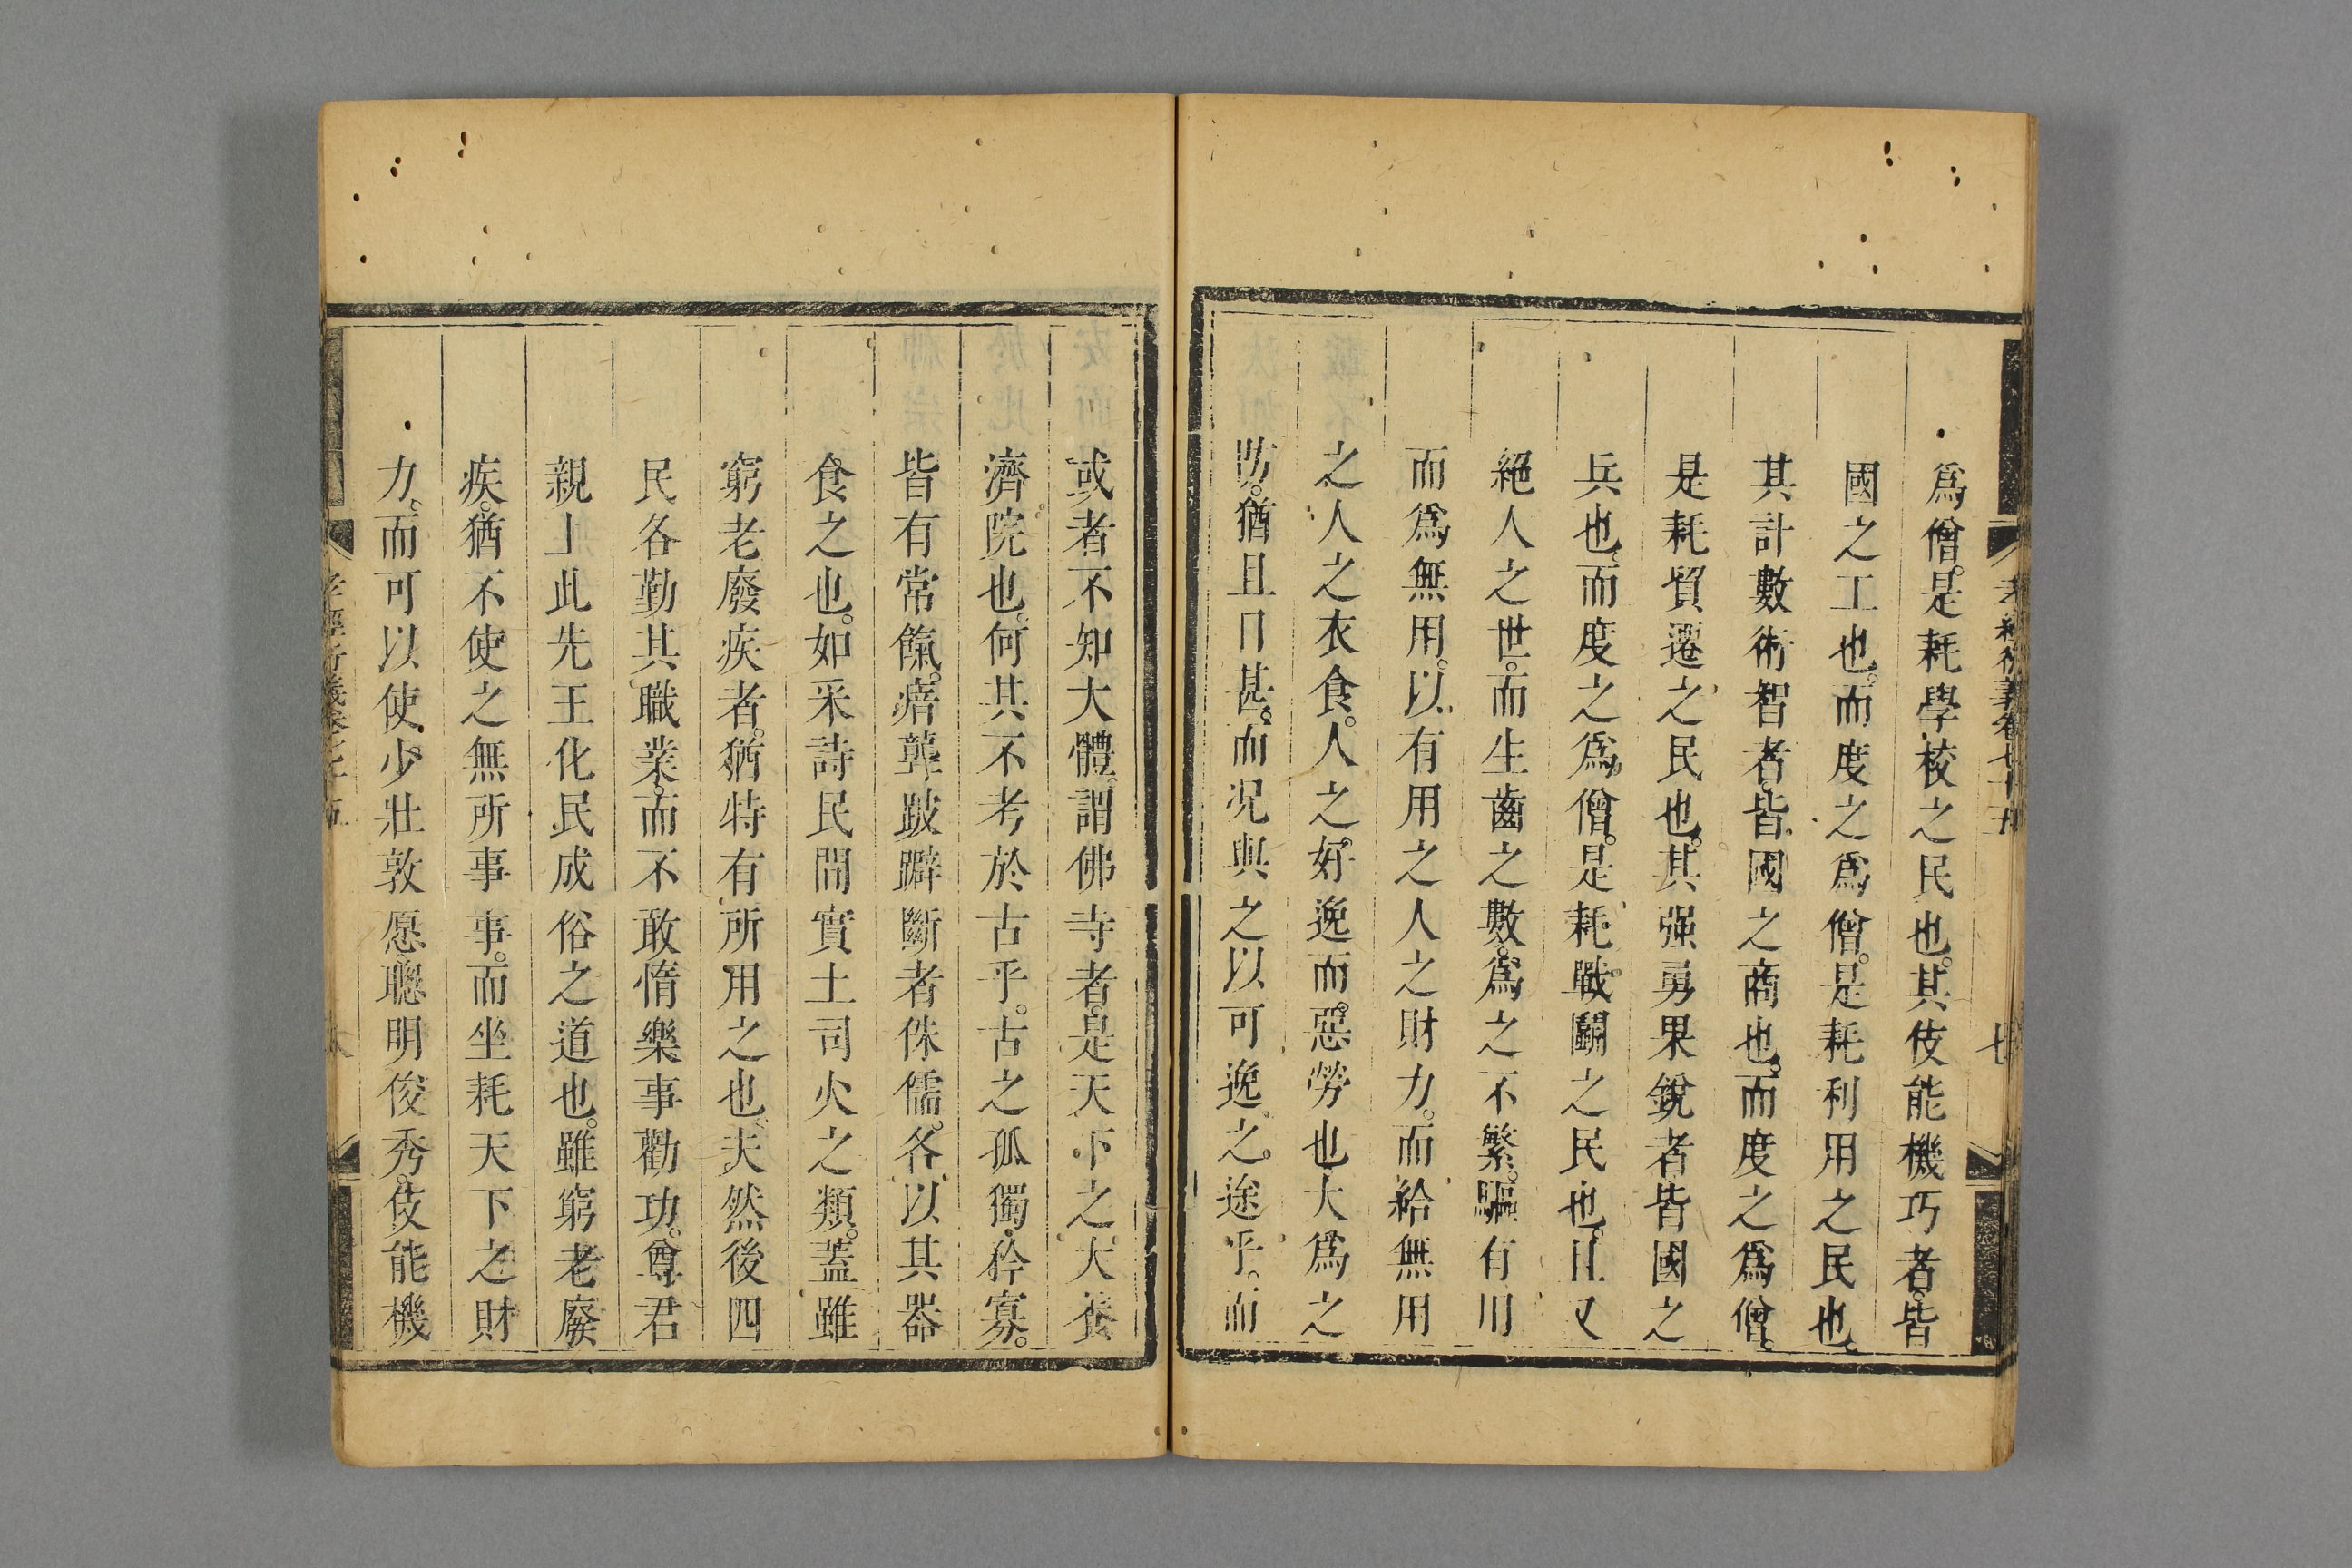 孝經衍義卷七十五
七
爲僧。是耗學校之民也。其伎能機巧者。皆
國之工也。而度之爲僧。是耗利用之民也。
其計數術智者。皆國之商也。而度之爲僧。
是耗貿遷之民也。其强勇果銳者皆國之
兵也。而度之爲僧。是耗戰鬭之民也。且又
絕人之世。而生齒之數。爲之不繁。驅有用
而爲無用。以有用之人之財力。而給無用
之人之衣食。人之好逸而惡勞也大爲之
防。猶且日甚。而况與之以可逸之途乎。而
或者不知大體。謂佛寺者。是天下之大養
濟院也。何其不考於古乎。古之孤獨矜寡。
皆有常餼。瘖聾跛躃斷者侏儒。各以其器
食之也。如采詩民間實土司火之類。蓋雖
窮老廢疾者。猶特有所用之也。夫然後四
民各勤其職業。而不敢惰樂事勸功。尊君
親上此先王化民成俗之道也。雖窮老廢
疾。猶不使之無所事事。而坐耗天下之財
力。而可以使少壯敦愿。聰明俊秀。伎能機
孝經衍義卷七十五
八